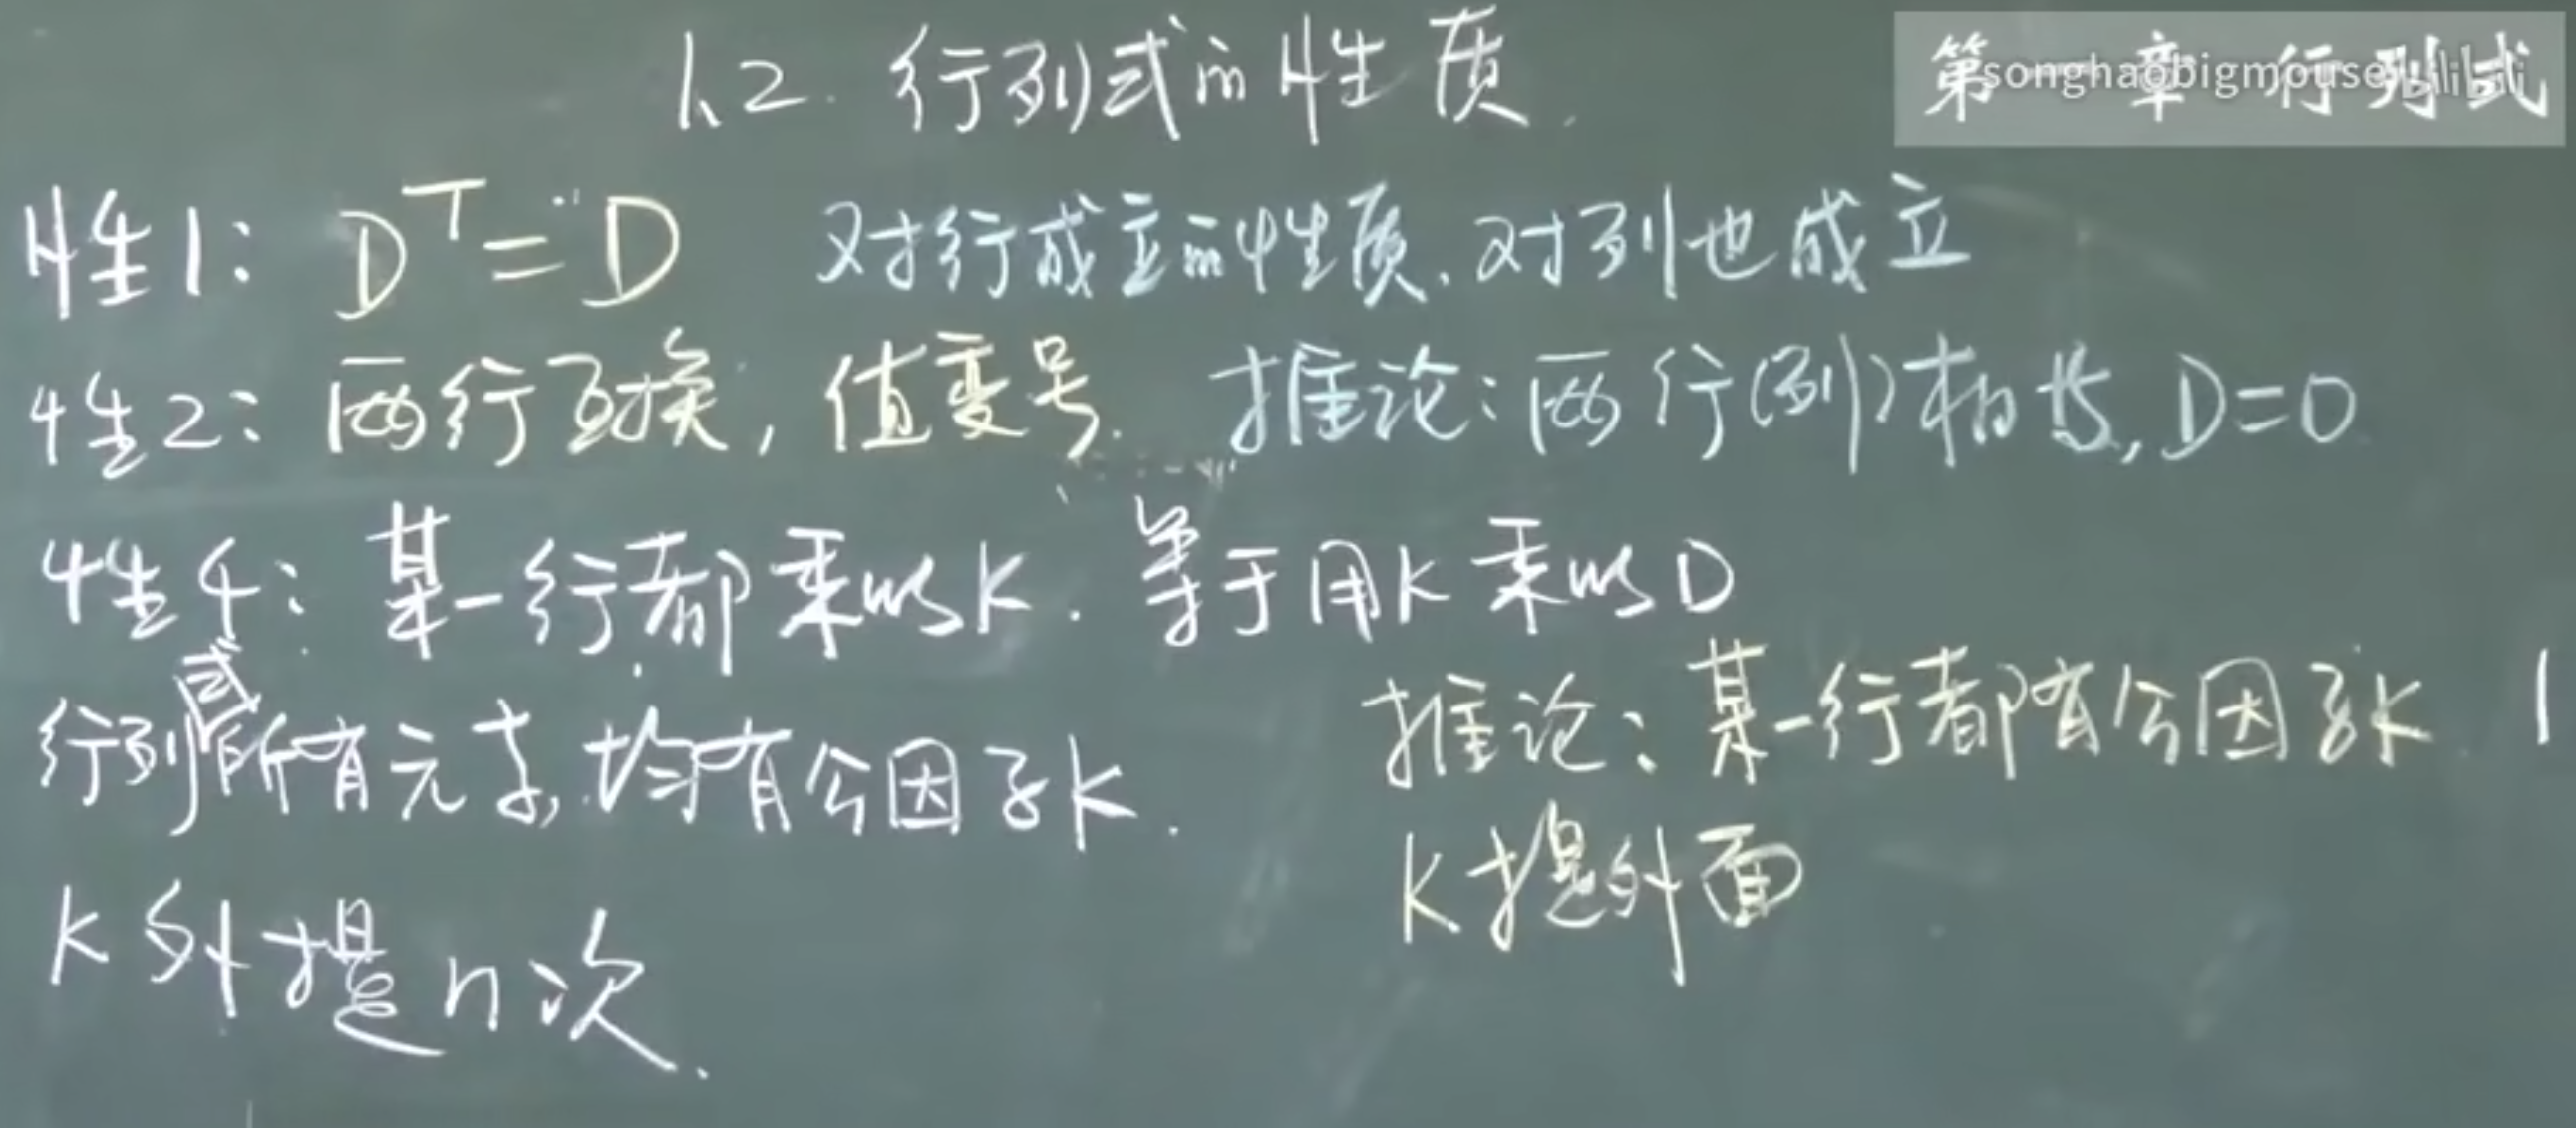 1.2. 行列式的性质.
第一章 行列式
songhaobigmouse bilibili
性1: D^T = D 对行成立的性质,对列也成立
性2: 两行互换,值变号. 推论:两行(列)相等,D=0
性4: 某一行都乘以K. 等于用K乘以D
行列式所有元素,均有公因子K.
推论:某一行都有公因子K
K提外面
K外提n次.